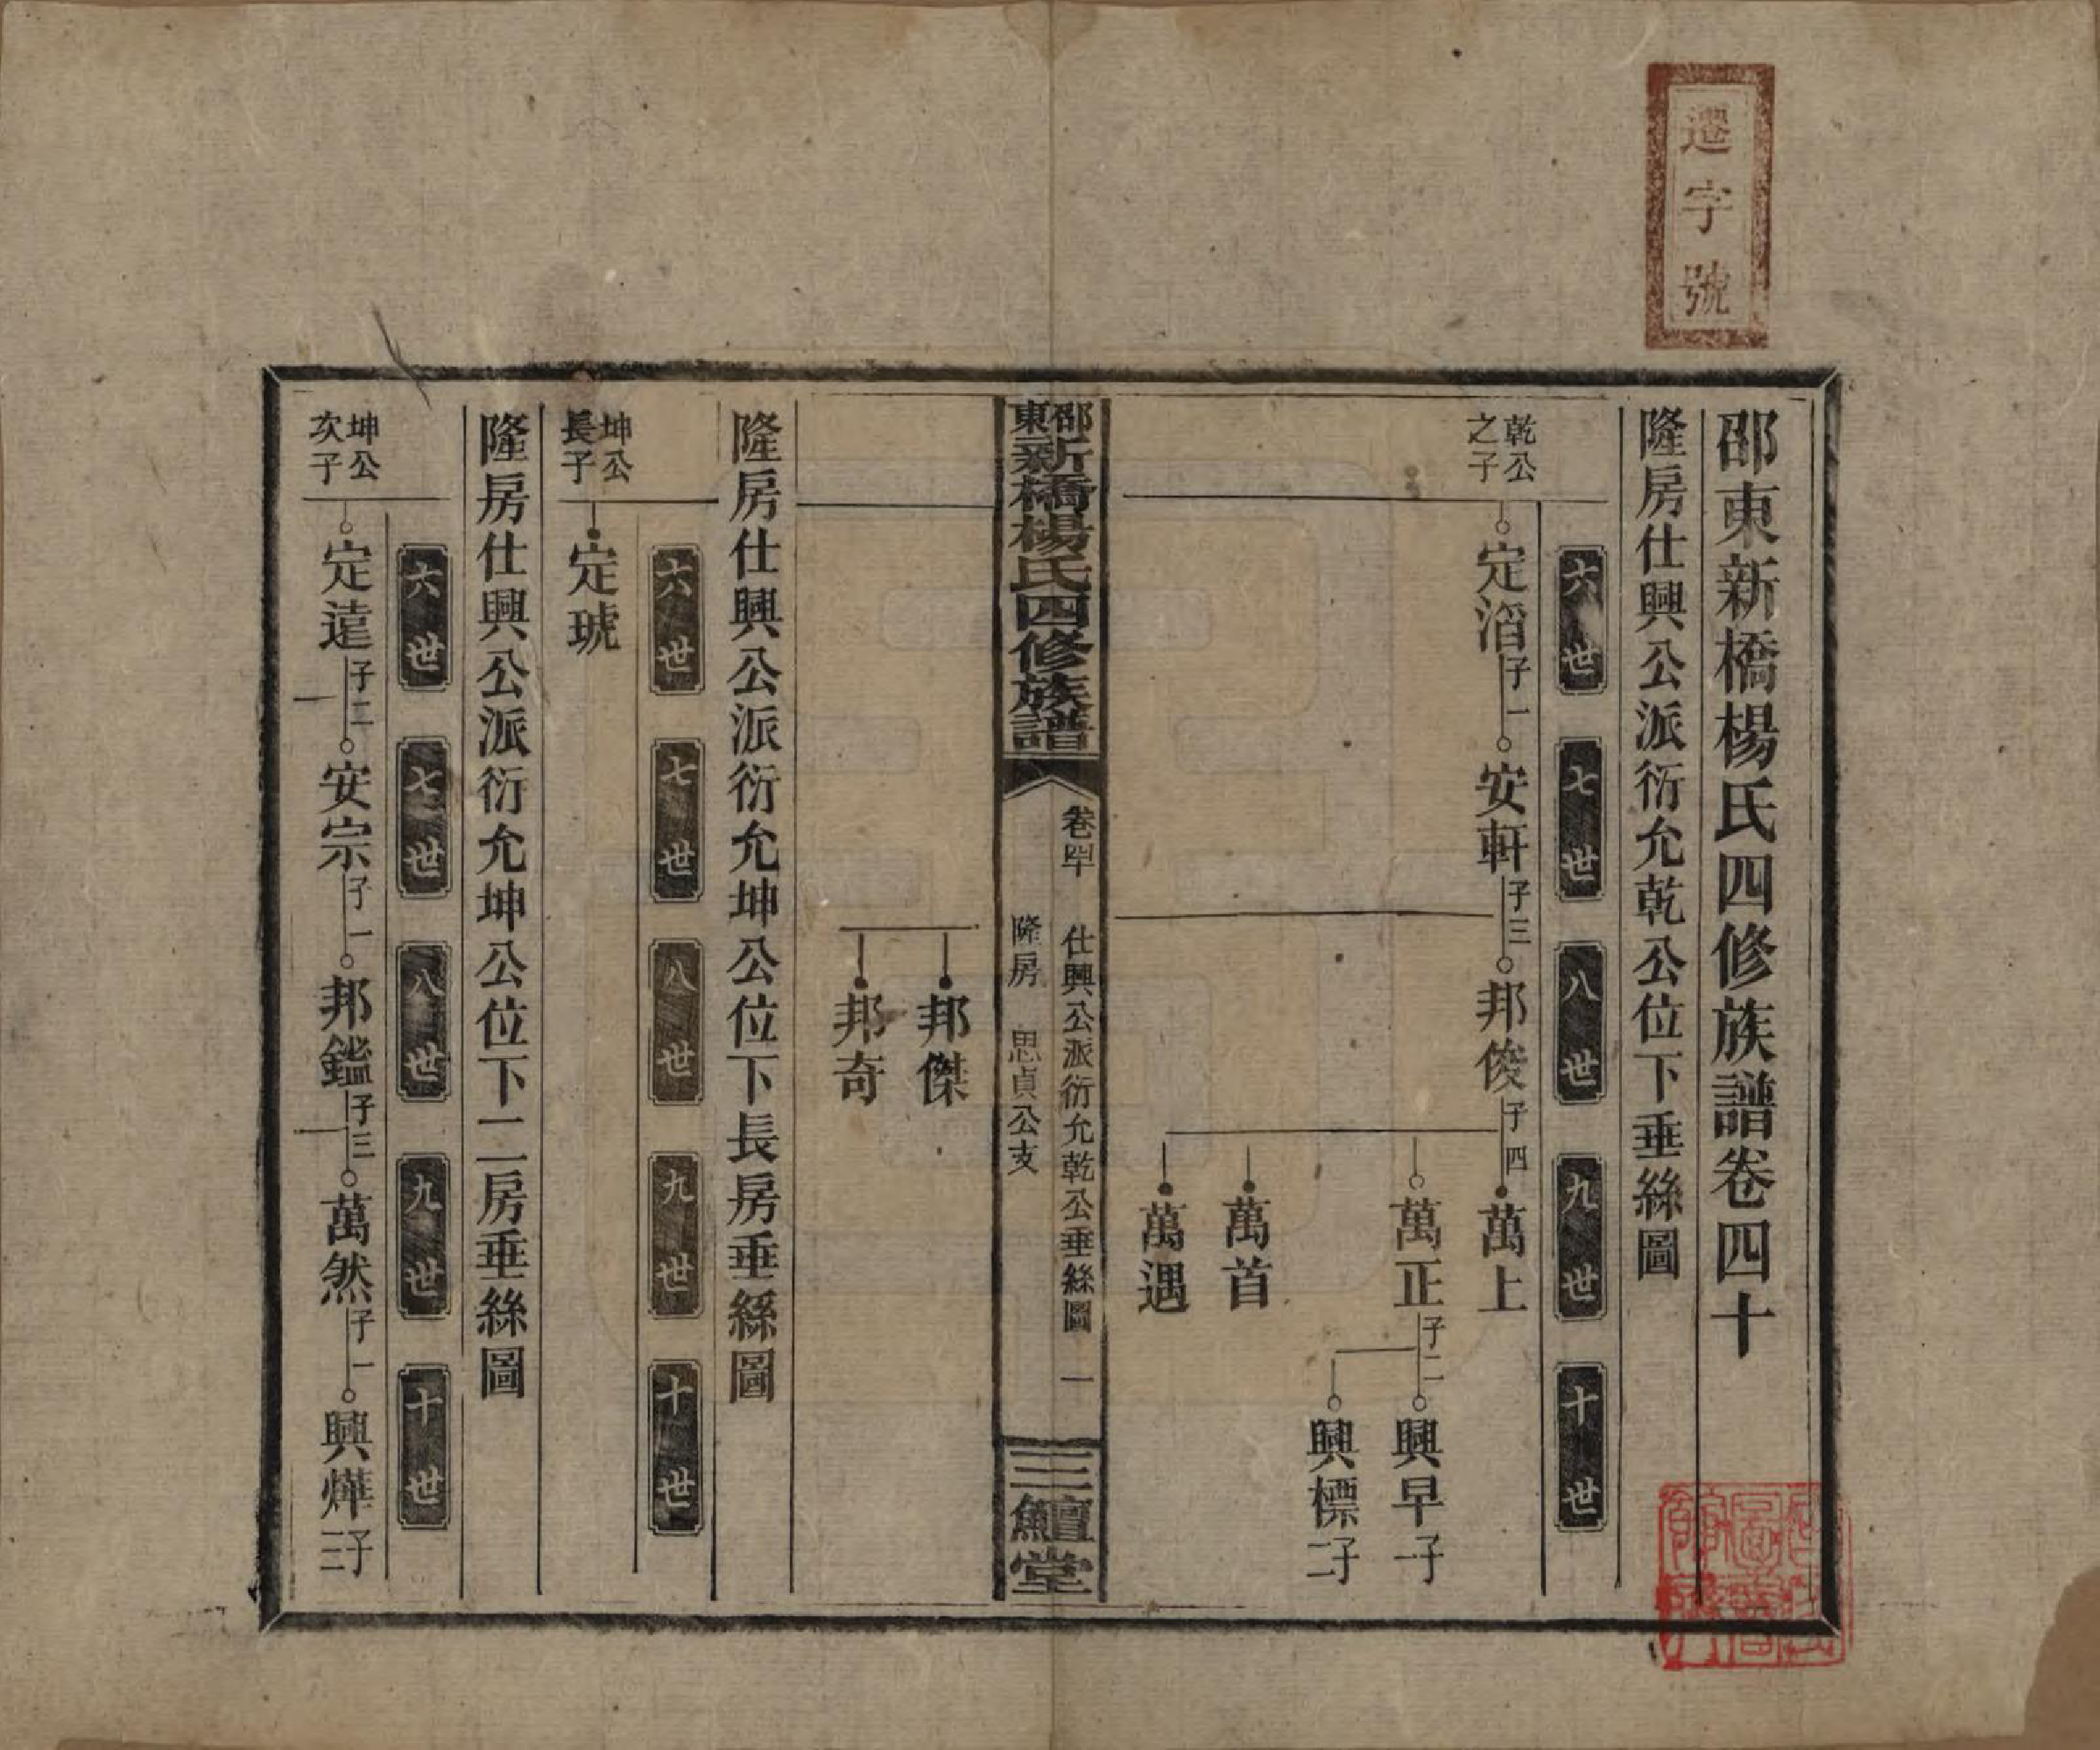 遷字號
邵東新橋楊氏四修族譜卷四十
隆房仕興公派衍允乾公位下垂絲圖
六世 七世 八世 九世 十世
乾公之子
定滔 子一 安軒 子三 邦俊 子四 萬上
萬正 子二 興早 子一
興標 子二
萬首
萬遇
邵東新橋楊氏四修族譜
卷四十 仕興公派衍允乾公垂絲圖 一
隆房 思貞公支
三鱣堂
邦傑
邦奇
隆房仕興公派衍允坤公位下長房垂絲圖
六世 七世 八世 九世 十世
坤公長子
定琥
隆房仕興公派衍允坤公位下二房垂絲圖
六世 七世 八世 九世 十世
坤公次子
定遠 子二 安宗 子一 邦鑑 子三 萬然 子一 興燁 子三